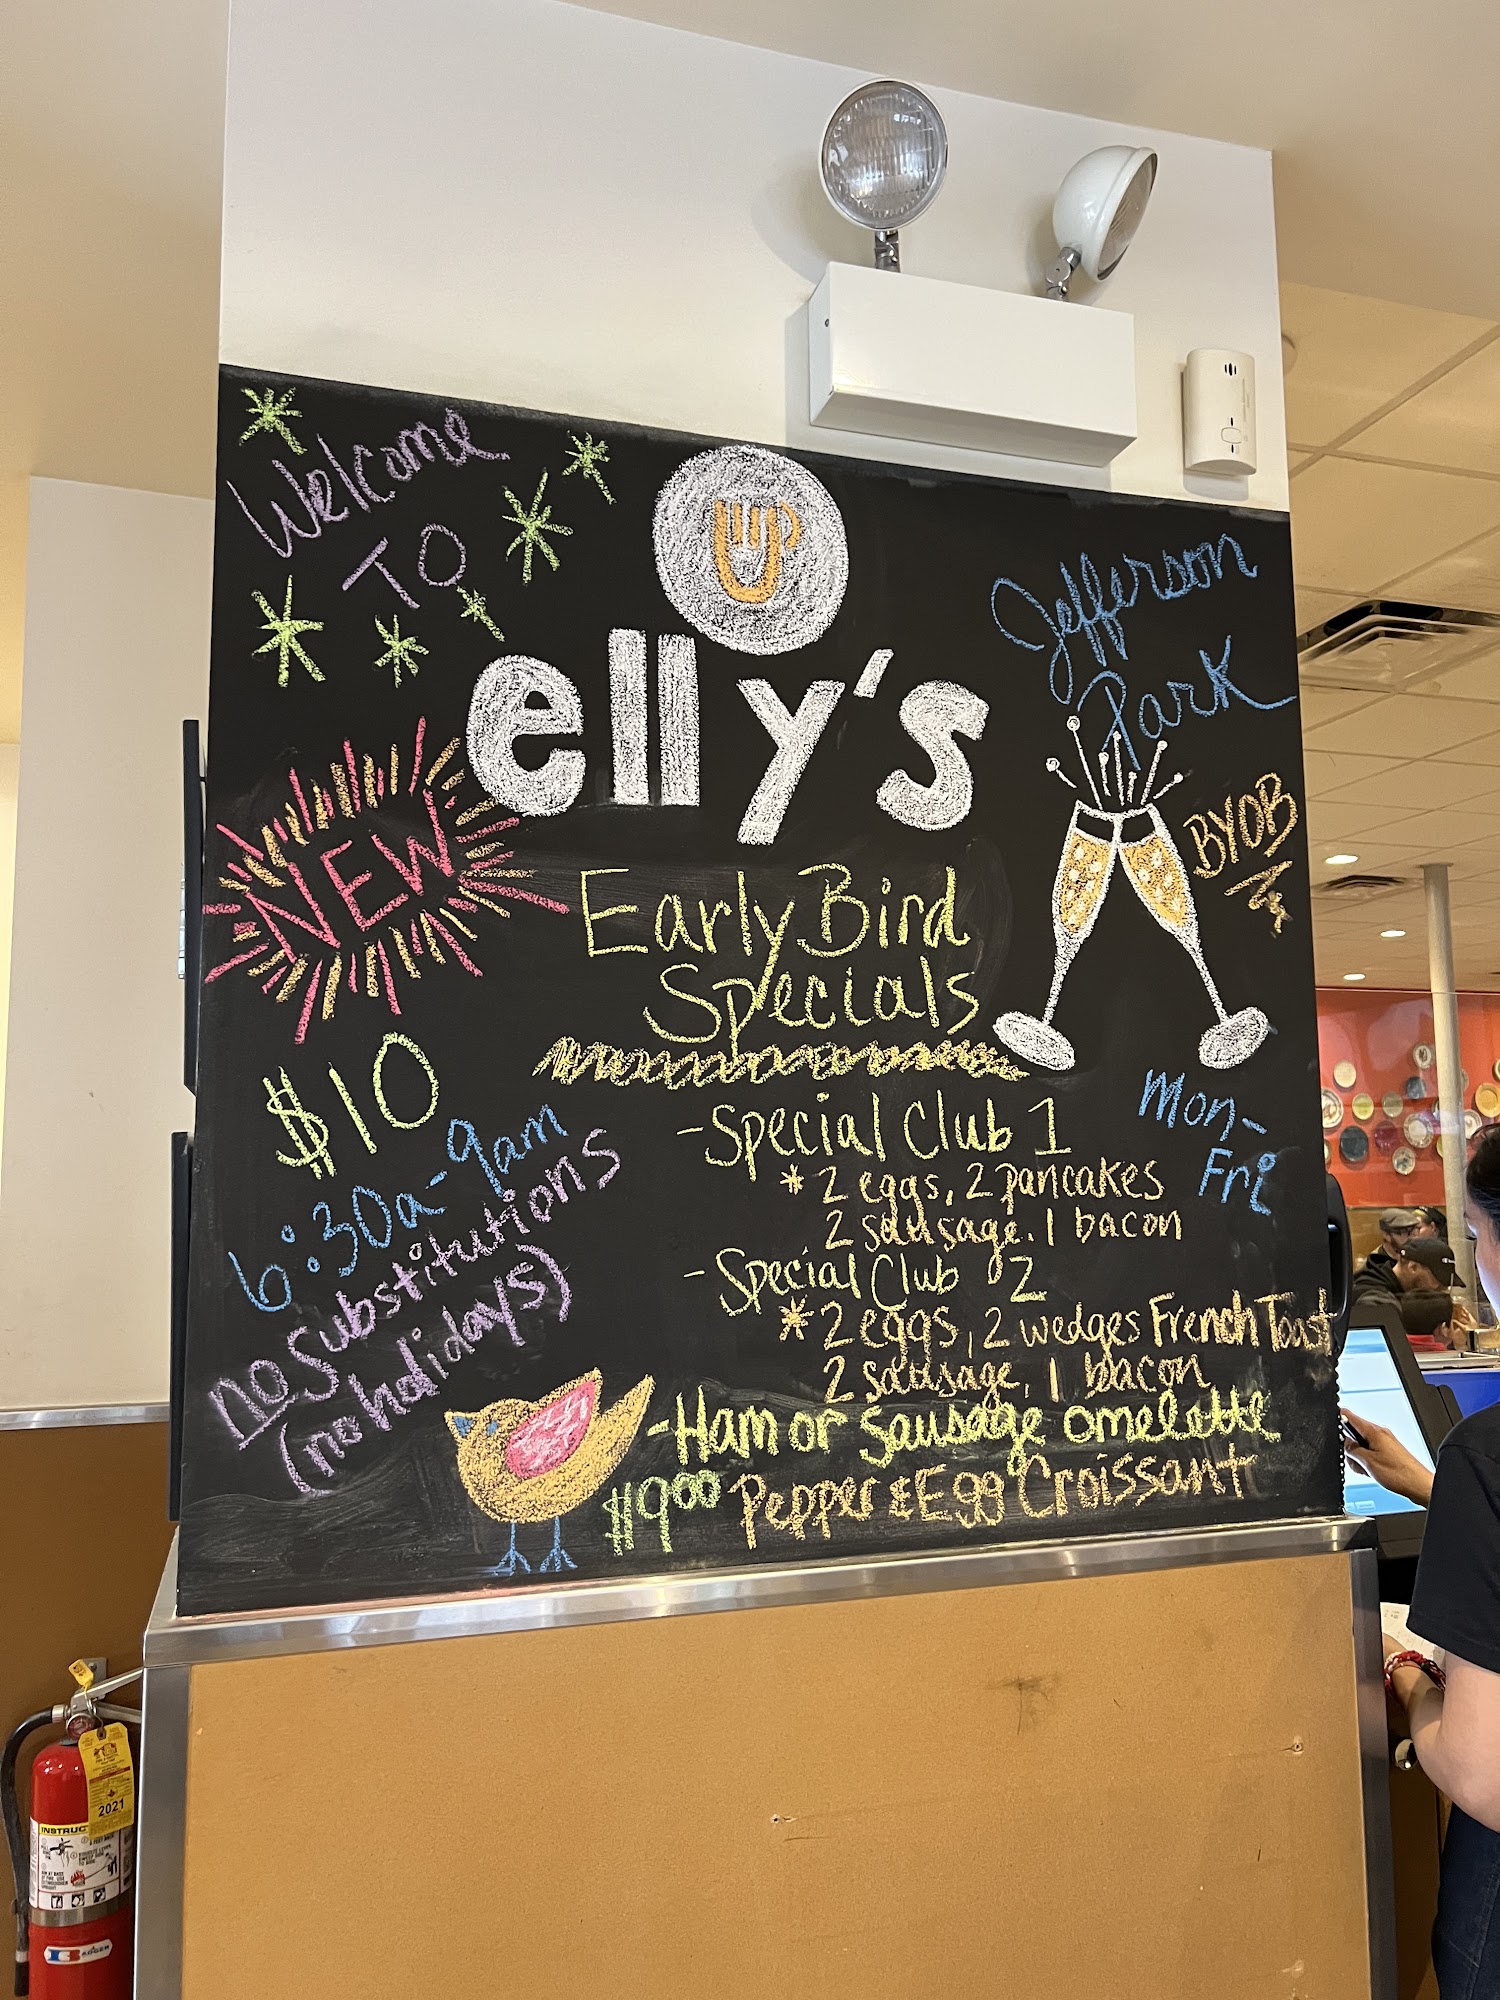 Welcome
To
elly's
Jefferson
Park
NEW
BYOB
Early Bird
Specials
$10
6:30a-9am
Mon-
Fri
no substitutions
(no holidays)
-Special Club 1
*2 eggs, 2 pancakes
2 sausage. 1 bacon
-Special Club 2
*2 eggs, 2 wedges French Toast
2 sausage, 1 bacon
-Ham or Sausage omelette
$900 Pepper & Egg Croissant
2021
INSTRUC
BADGER